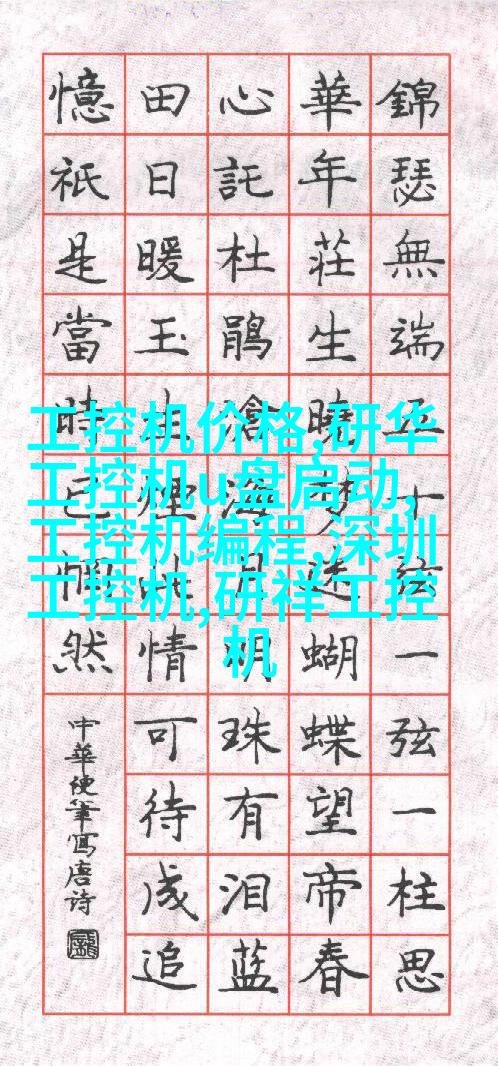 錦瑟無端五十弦一弦一柱思
華年莊生曉夢迷蝴蝶望帝春
心託杜鵑滄海月明珠有泪蓝
田日暖玉生煙此情可待成追
憶祇是當時已惘然
中華便筆寫唐诗
工控机价格,研华
工控机u盘启动,
工控机编程,深圳
工控机,研祥工控
机